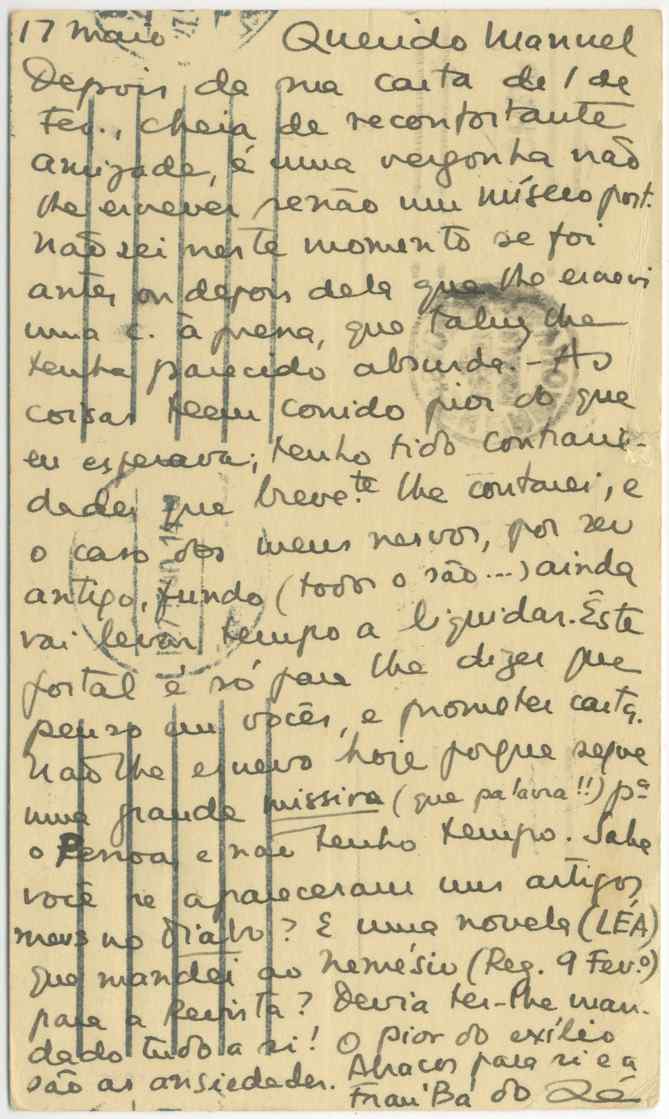 17 maio Querido Manuel
Depois da sua carta de 1 de
Fev., cheia de reconfortante
amizade, é uma vergonha não
lhe escrever senão um mísero post.
Não sei neste momento se foi
antes ou depois dela que lhe escrevi
uma c. à pena, que talvez lhe
tenha parecido absurda. - As
coisas teem corrido pior do que
eu esperava; tenho tido contrarie-
dades que breve.te lhe contarei, e
o caso dos meus nervos, por ser
antigo, fundo (todos o são...) ainda
vai levar tempo a liquidar. Este
postal é só para lhe dizer que
penso em vocês, e prometer carta.
Não lhe escrevo hoje porque segue
uma grande missiva (que palavra!!) pª
o Pessoa, e não tenho tempo. Sabe
você se apareceram uns artigos
meus no Diabo? E uma novela (LÉA)
que mandei ao Nemésio (Reg. 9 Fev.º)
para a Revista? Devia ter-lhe man-
dado tudo a si! O pior do exílio
são as ansiedades. Abraços para si e a
Frau Ba do Zé